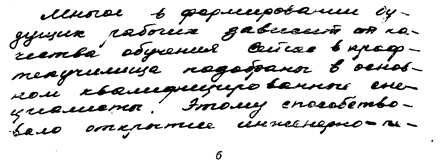 Многое в формировании бу-
дущих рабочих зависит от ка-
чества обучения сейчас в проф-
техучилища подобраны в основ-
ном квалифицированные спе-
циалисты. Этому способство-
вало открытие инженерно-пе-
б